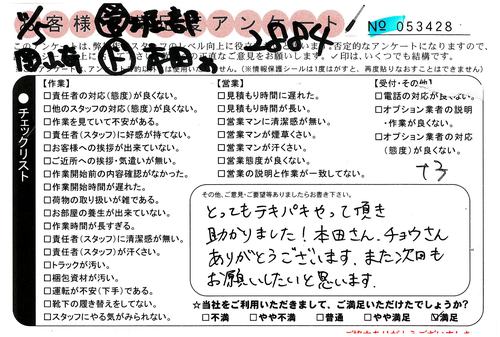 お客様満足度アンケート
No 053428
2884
このアンケートは、弊社スタッフのレベル向上に役
否定的なアンケートになりますので、
✓印は、いくつでも結構です。
(※情報保護シールは1度はがすと、再度貼りなおすことはできません)
チェックリスト
【作業】
□責任者の対応(態度)が良くない。
□他のスタッフの対応(態度)が良くない。
□作業を見ていて不安がある。
□責任者(スタッフ)に好感が持てない。
□お客様への挨拶が出来ていない。
□ご近所への挨拶・気遣いが無い。
□作業開始前の内容確認がなかった。
□作業開始時間が遅れた。
□荷物の取り扱いが雑である。
□お部屋の養生が出来ていない。
□作業時間が長すぎる。
□責任者(スタッフ)に清潔感が無い。
□責任者(スタッフ)が汗くさい。
□トラックが汚い。
□梱包資材が汚い。
□運転が不安(下手)である。
□靴下の履き替えをしてない。
□スタッフにやる気がみられない。
【営業】
□見積もり時間に遅れた。
□見積もり時間が長い。
□営業マンに清潔感が無い。
□営業マンが煙草くさい。
□営業マンが汗くさい。
□営業態度が良くない。
□営業の説明と作業が一致してない。
【受付・その他】
□電話の対応が良くない。
□オプション業者の説明
・作業が良くない。
□オプション業者の対応
(態度)が良くない。
その他、ご意見・ご要望等ありましたらお書き下さい。
とってもテキパキやって頂き
助かりました!本田さん、チョウさん
ありがとうございます。また次回も
お願いしたいと思います。
☆当社をご利用いただきまして、ご満足いただけたでしょうか?
□不満 □やや不満 □普通 □やや満足 ☑満足